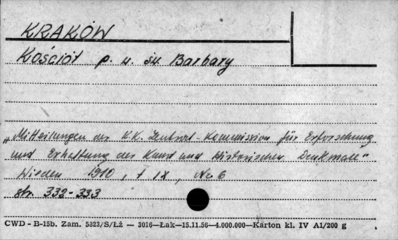 KRAKÓW
Kościół p. w. św. Barbary
„Mitteilungen der K.K. Zentral-Kommission für Erforschung
und Erhaltung der Kunst und Historischen Denkmale"
Wieden 1910, t IX, Nr 6
str. 332-333
CWD - B-15b. Zam. 5323/S/Łż — 3016—Łak—15.11.56—4.000.000—Karton kl. IV A1/200 g